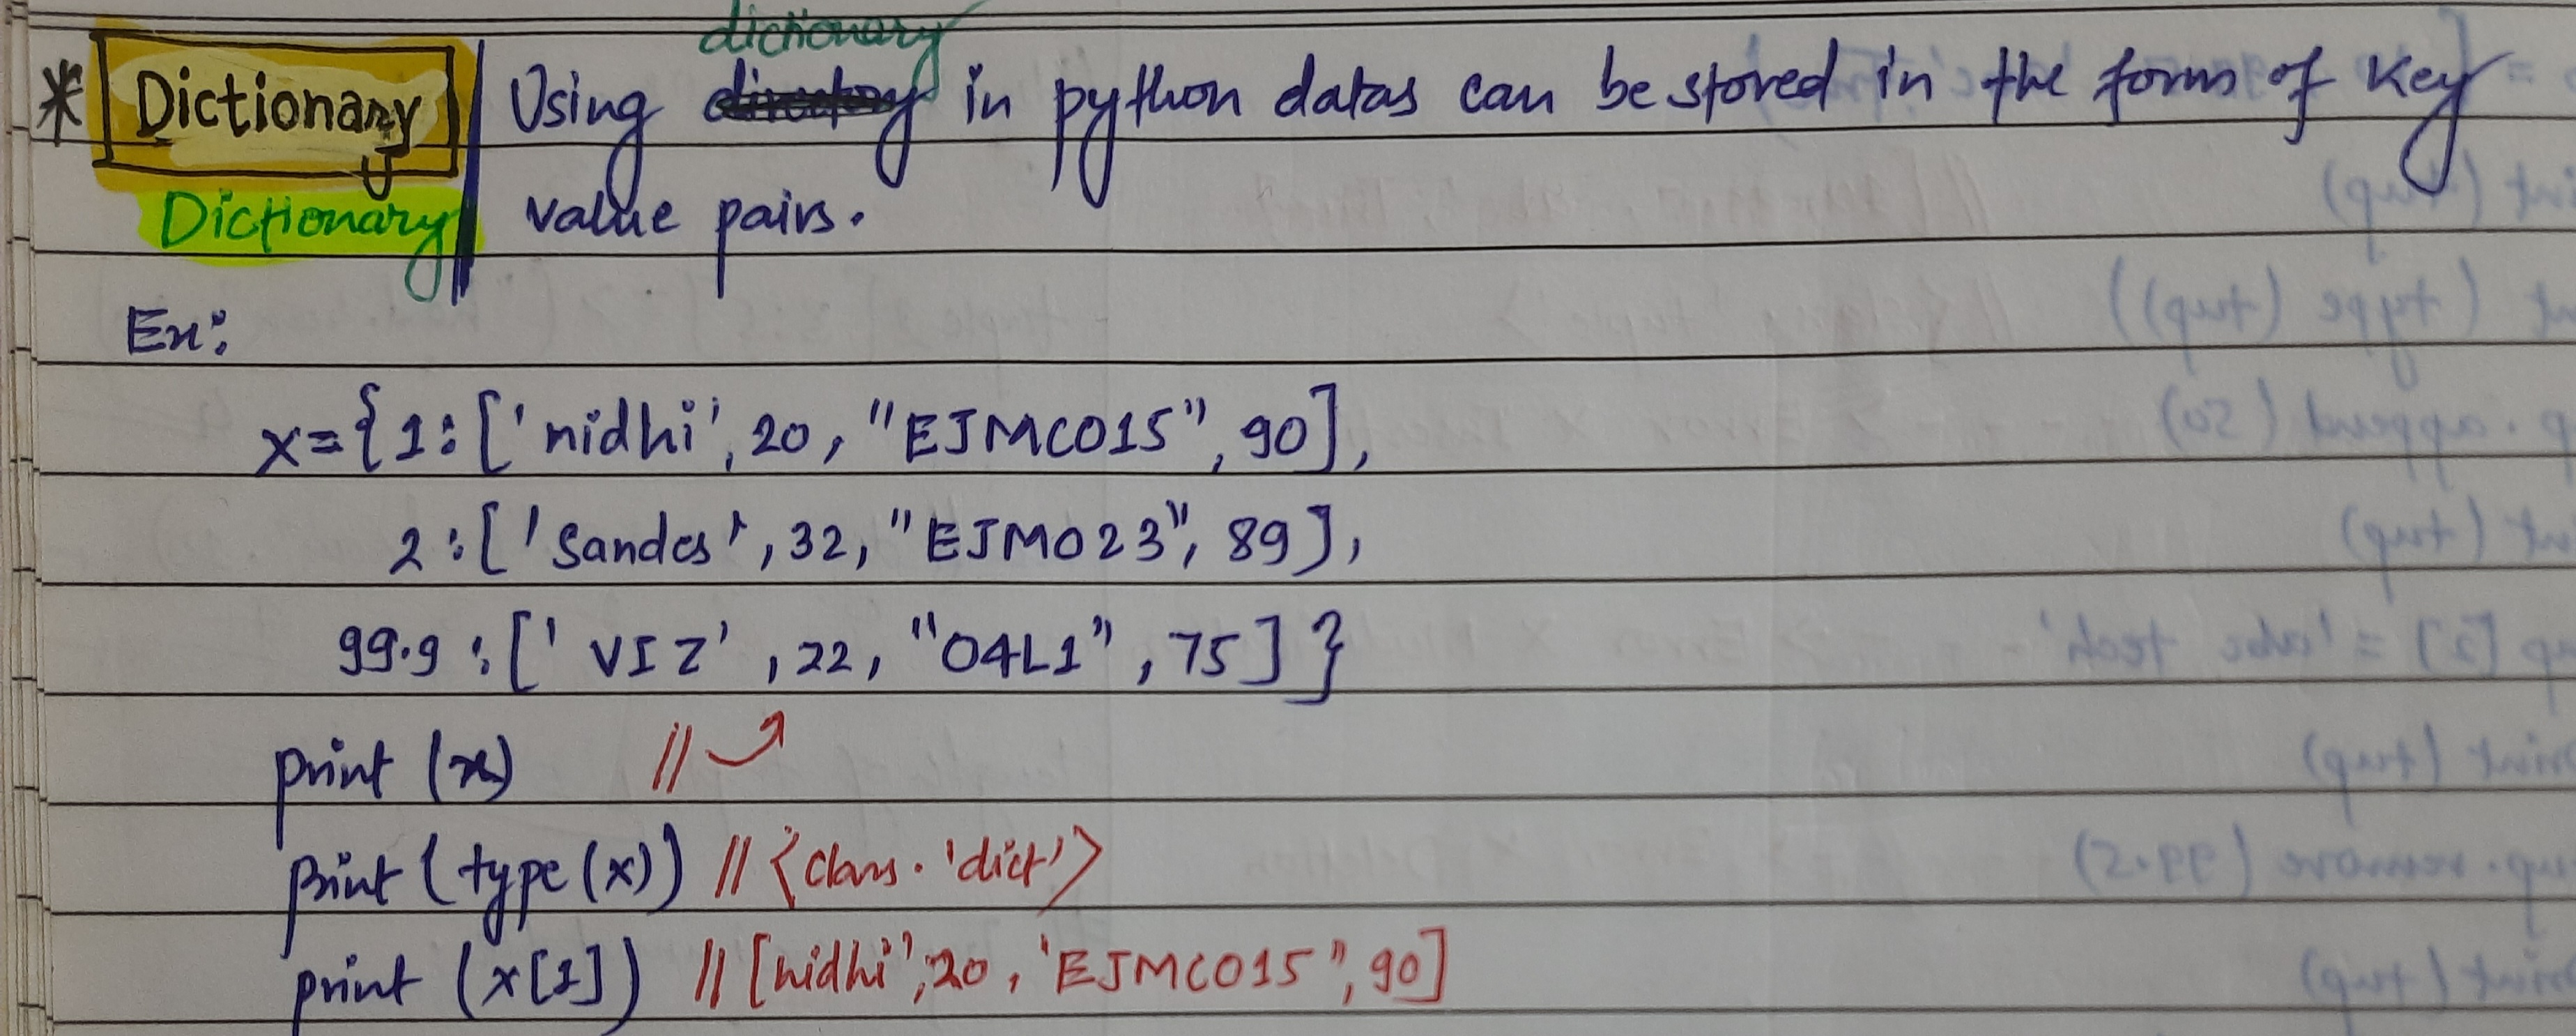 * Dictionary | Using dictionary in python datas can be stored in the form of key
Dictionary | value pairs.
Ex:
x={1:['nidhi',20,"EJMC015",90],
2:['Sandes',32,"EJM023",89],
99.9:['VIZ',22,"04L1",75]}
print (x) //
print (type(x)) // <class. 'dict'>
print (x[1]) // [nidhi',20,'EJMC015",90]